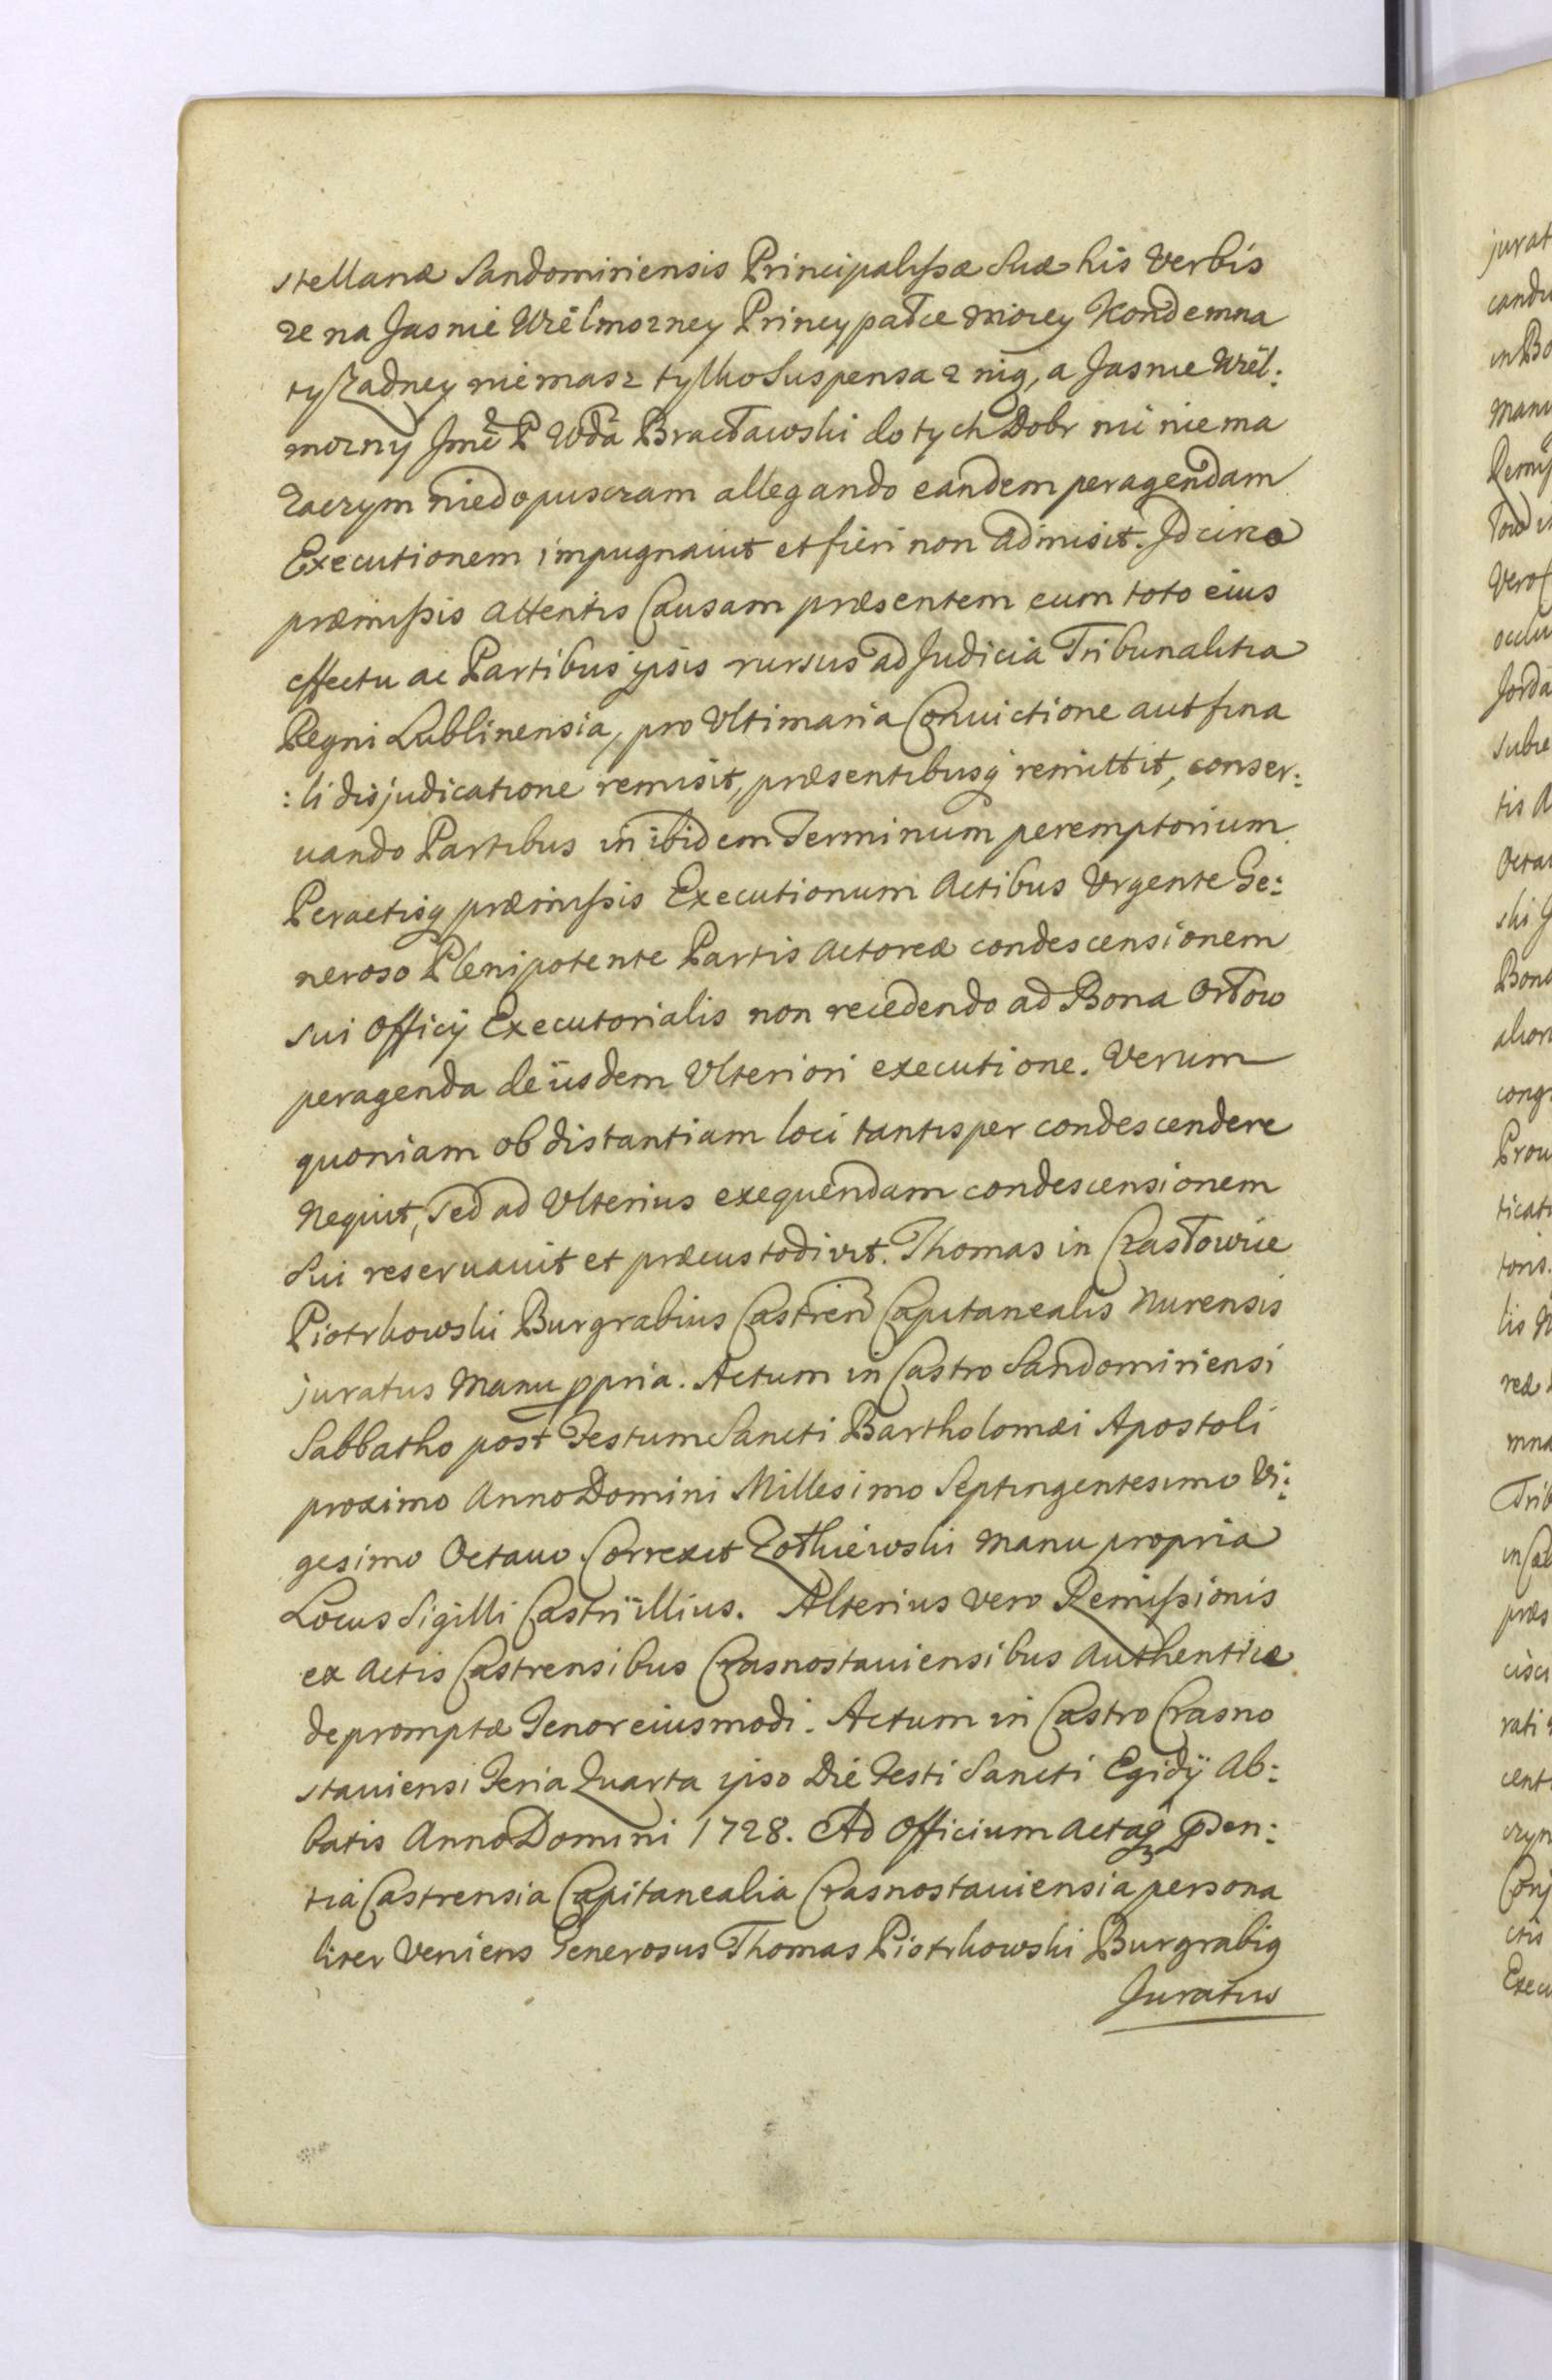 stellanæ Sandomiriensis Principalissæ Suæ his Verbis
ze na Jasnie Wielmozney Pryncypałce moiey Kondemna
ty Zadney niemasz tylko Suspensa z nią, a Jasnie Wiel:
mozny Jmć P Wda Bracławski do tych Dobr nic niema
Zaczym niedopuszczam allegando eandem peragendam
Executionem impugnauit et fieri non admisit. Idcirco
præmissis attentis Causam præsentem cum toto eius
effectu ac Partibus ipsis rursus ad Judicia Tribunalitia
Regni Lublinensia, pro Vltimaria Conuictione aut fina
:li disjudicatione remisit, præsentibusq remittit, conser:
uando Partibus inibidem Terminum peremptorium
Peractisq præmissis Executionum Actibus Vrgente Ge:
neroso Plenipotente Partis Actoreæ condescensionem
sui Officij Executorialis non recedendo ad Bona Orłow
peragenda de iisdem Vlteriori executione. Verum
quoniam ob distantiam loci tantisper condescendere
Nequit, sed ad Vlterius exequendam condescensionem
Sui reseruauit et præcustodiuit. Thomas in Czasłowice
Piotrkowski Burgrabius Castren Capitanealis Nurensis
juratus Manu ppria. Actum in Castro Sandomiriensi
Sabbatho post Festum Sancti Bartholomæi Apostoli
proximo Anno Domini Millesimo Septingentesimo Vi:
gesimo Octauo. Correxit Zołkiewski manu propria
Locus Sigilli Castri illius. Alterius vero Remissionis
ex Actis Castrensibus Crasnostauiensibus Authentice
depromptæ Tenor eiusmodi. Actum in Castro Crasno
stauiensi Feria Quarta ipso Die Festi Sancti Egidij Ab:
batis Anno Domini 1728. Ad Officium Actaq pden:
tia Castrensia Capitanealia Crasnostauiensia persona
liter Veniens Generosus Thomas Piotrkowski Burgrabig
Juratus